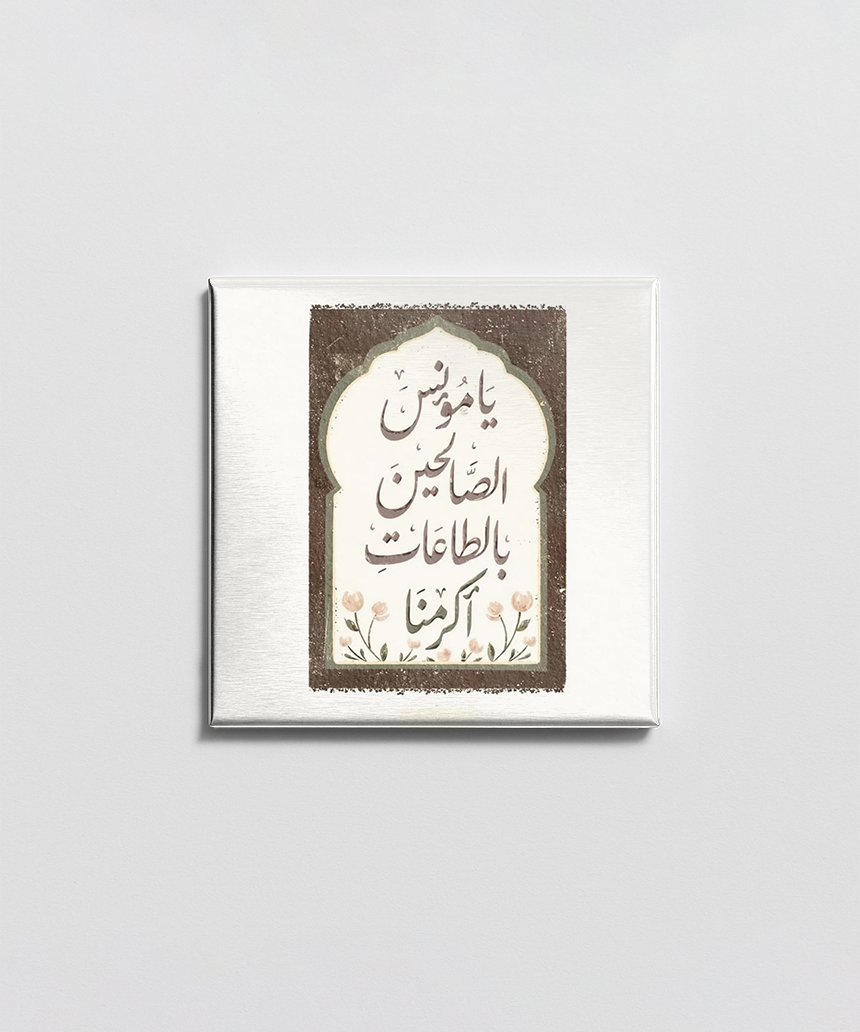 يَا مُؤنِسَ
الصَّالحِينَ
بالطاعَاتِ
أكرمنَا